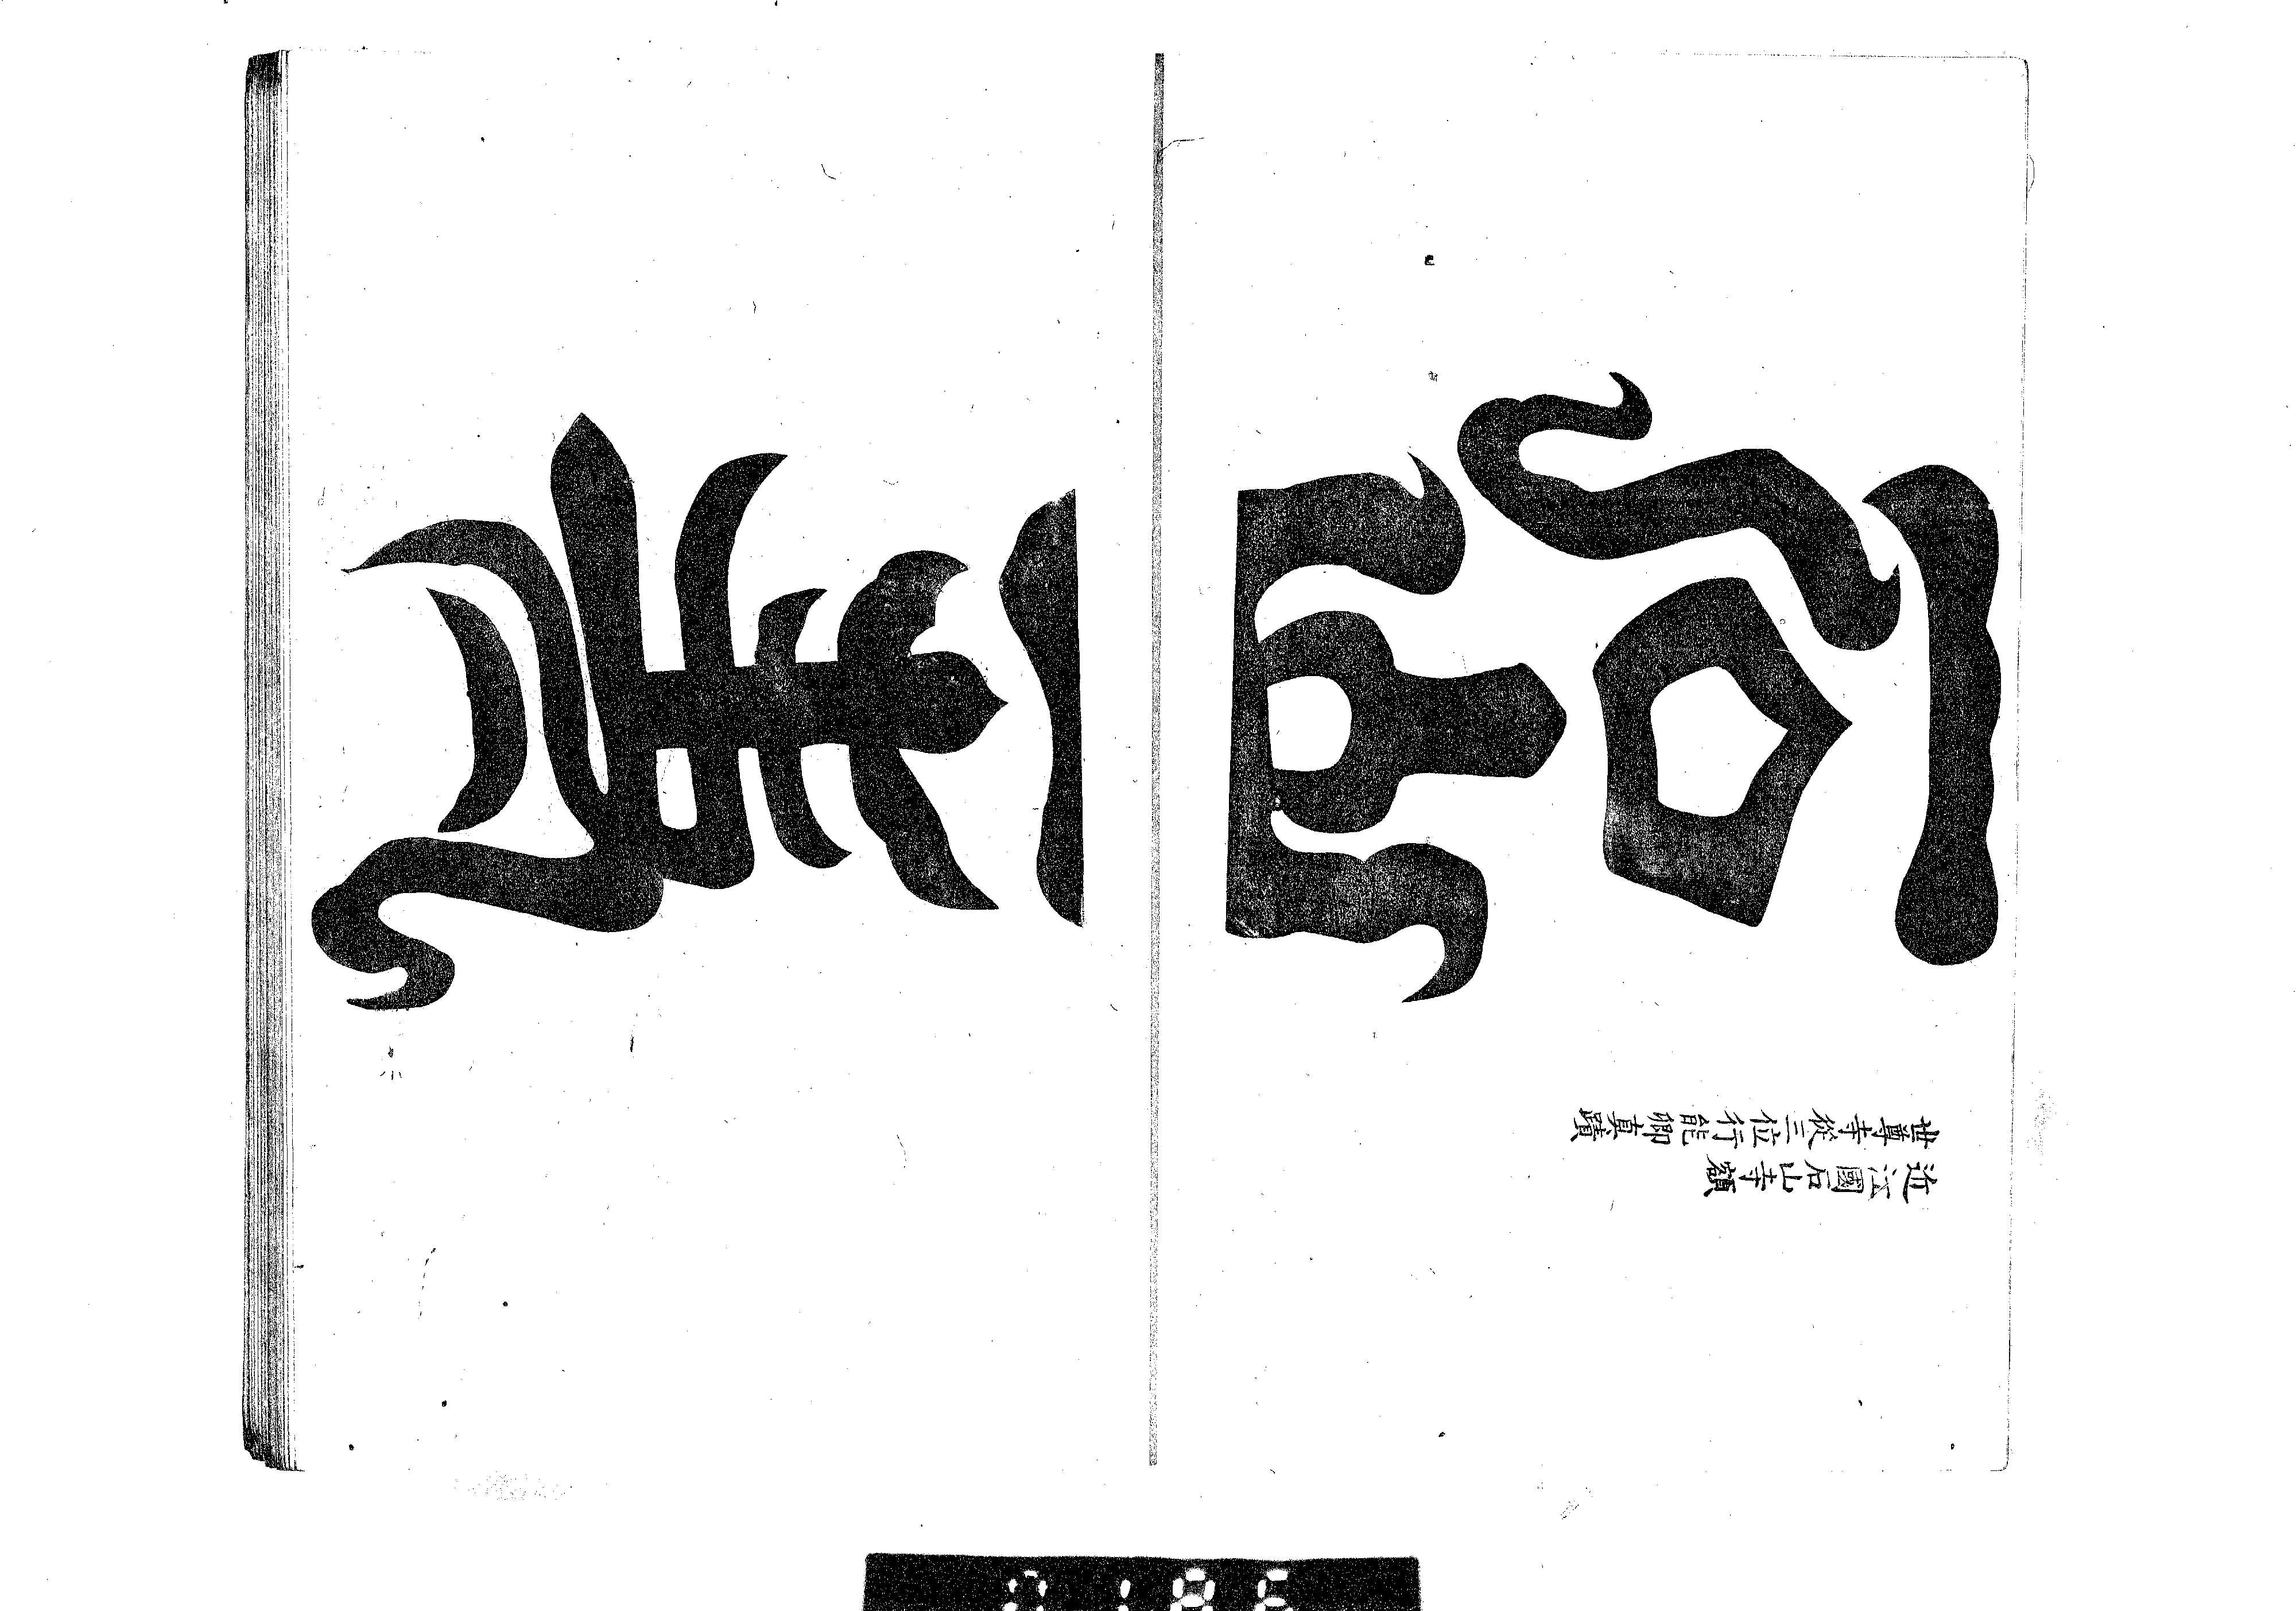 近江國石山寺額
世尊寺從三位行能卿真蹟
石山寺